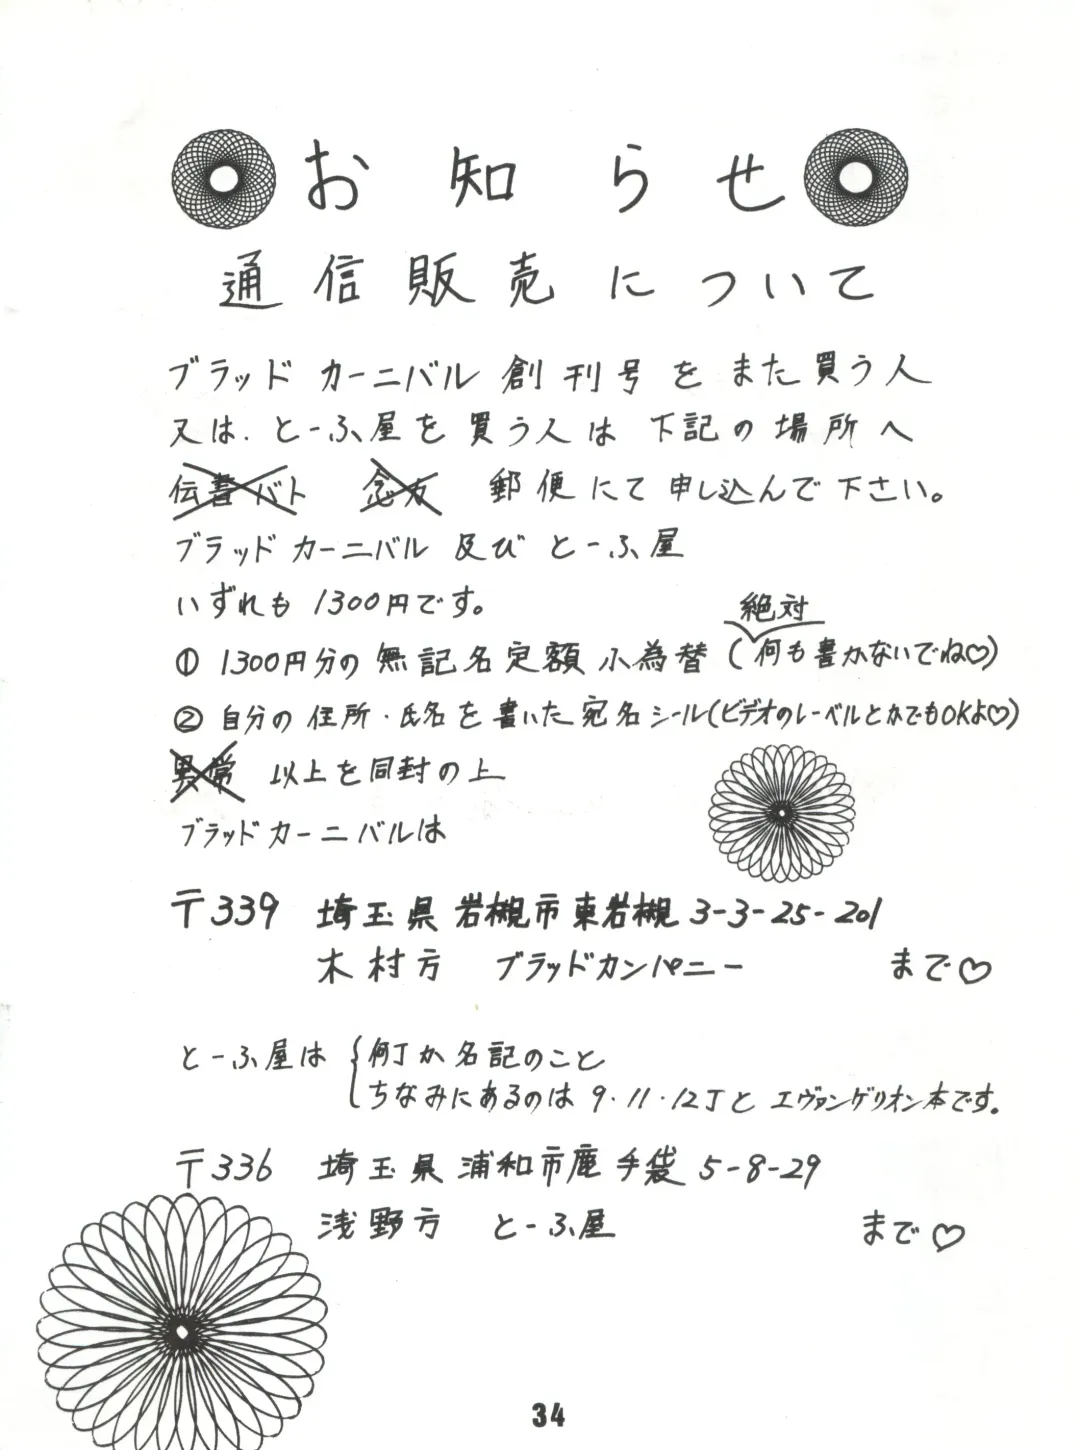 お知らせ
通信販売について
ブラッドカーニバル創刊号をまた買う人
又は、とーふ屋を買う人は下記の場所へ
伝書バト 念力 郵便にて申し込んで下さい。
ブラッドカーニバル及びとーふ屋
いずれも1300円です。
絶対
① 1300円分の無記名定額小為替(何も書かないでね♡)
② 自分の住所・氏名を書いた宛名シール(ビデオのレーベルとかでもOKよ♡)
異常 以上を同封の上
ブラッドカーニバルは
〒339 埼玉県岩槻市東岩槻3-3-25-201
木村方 ブラッドカンパニー まで♡
とーふ屋は 何丁か名記のこと
ちなみにあるのは9・11・12丁とエヴァンゲリオン本です。
〒336 埼玉県浦和市鹿手袋5-8-29
浅野方 とーふ屋 まで♡
34